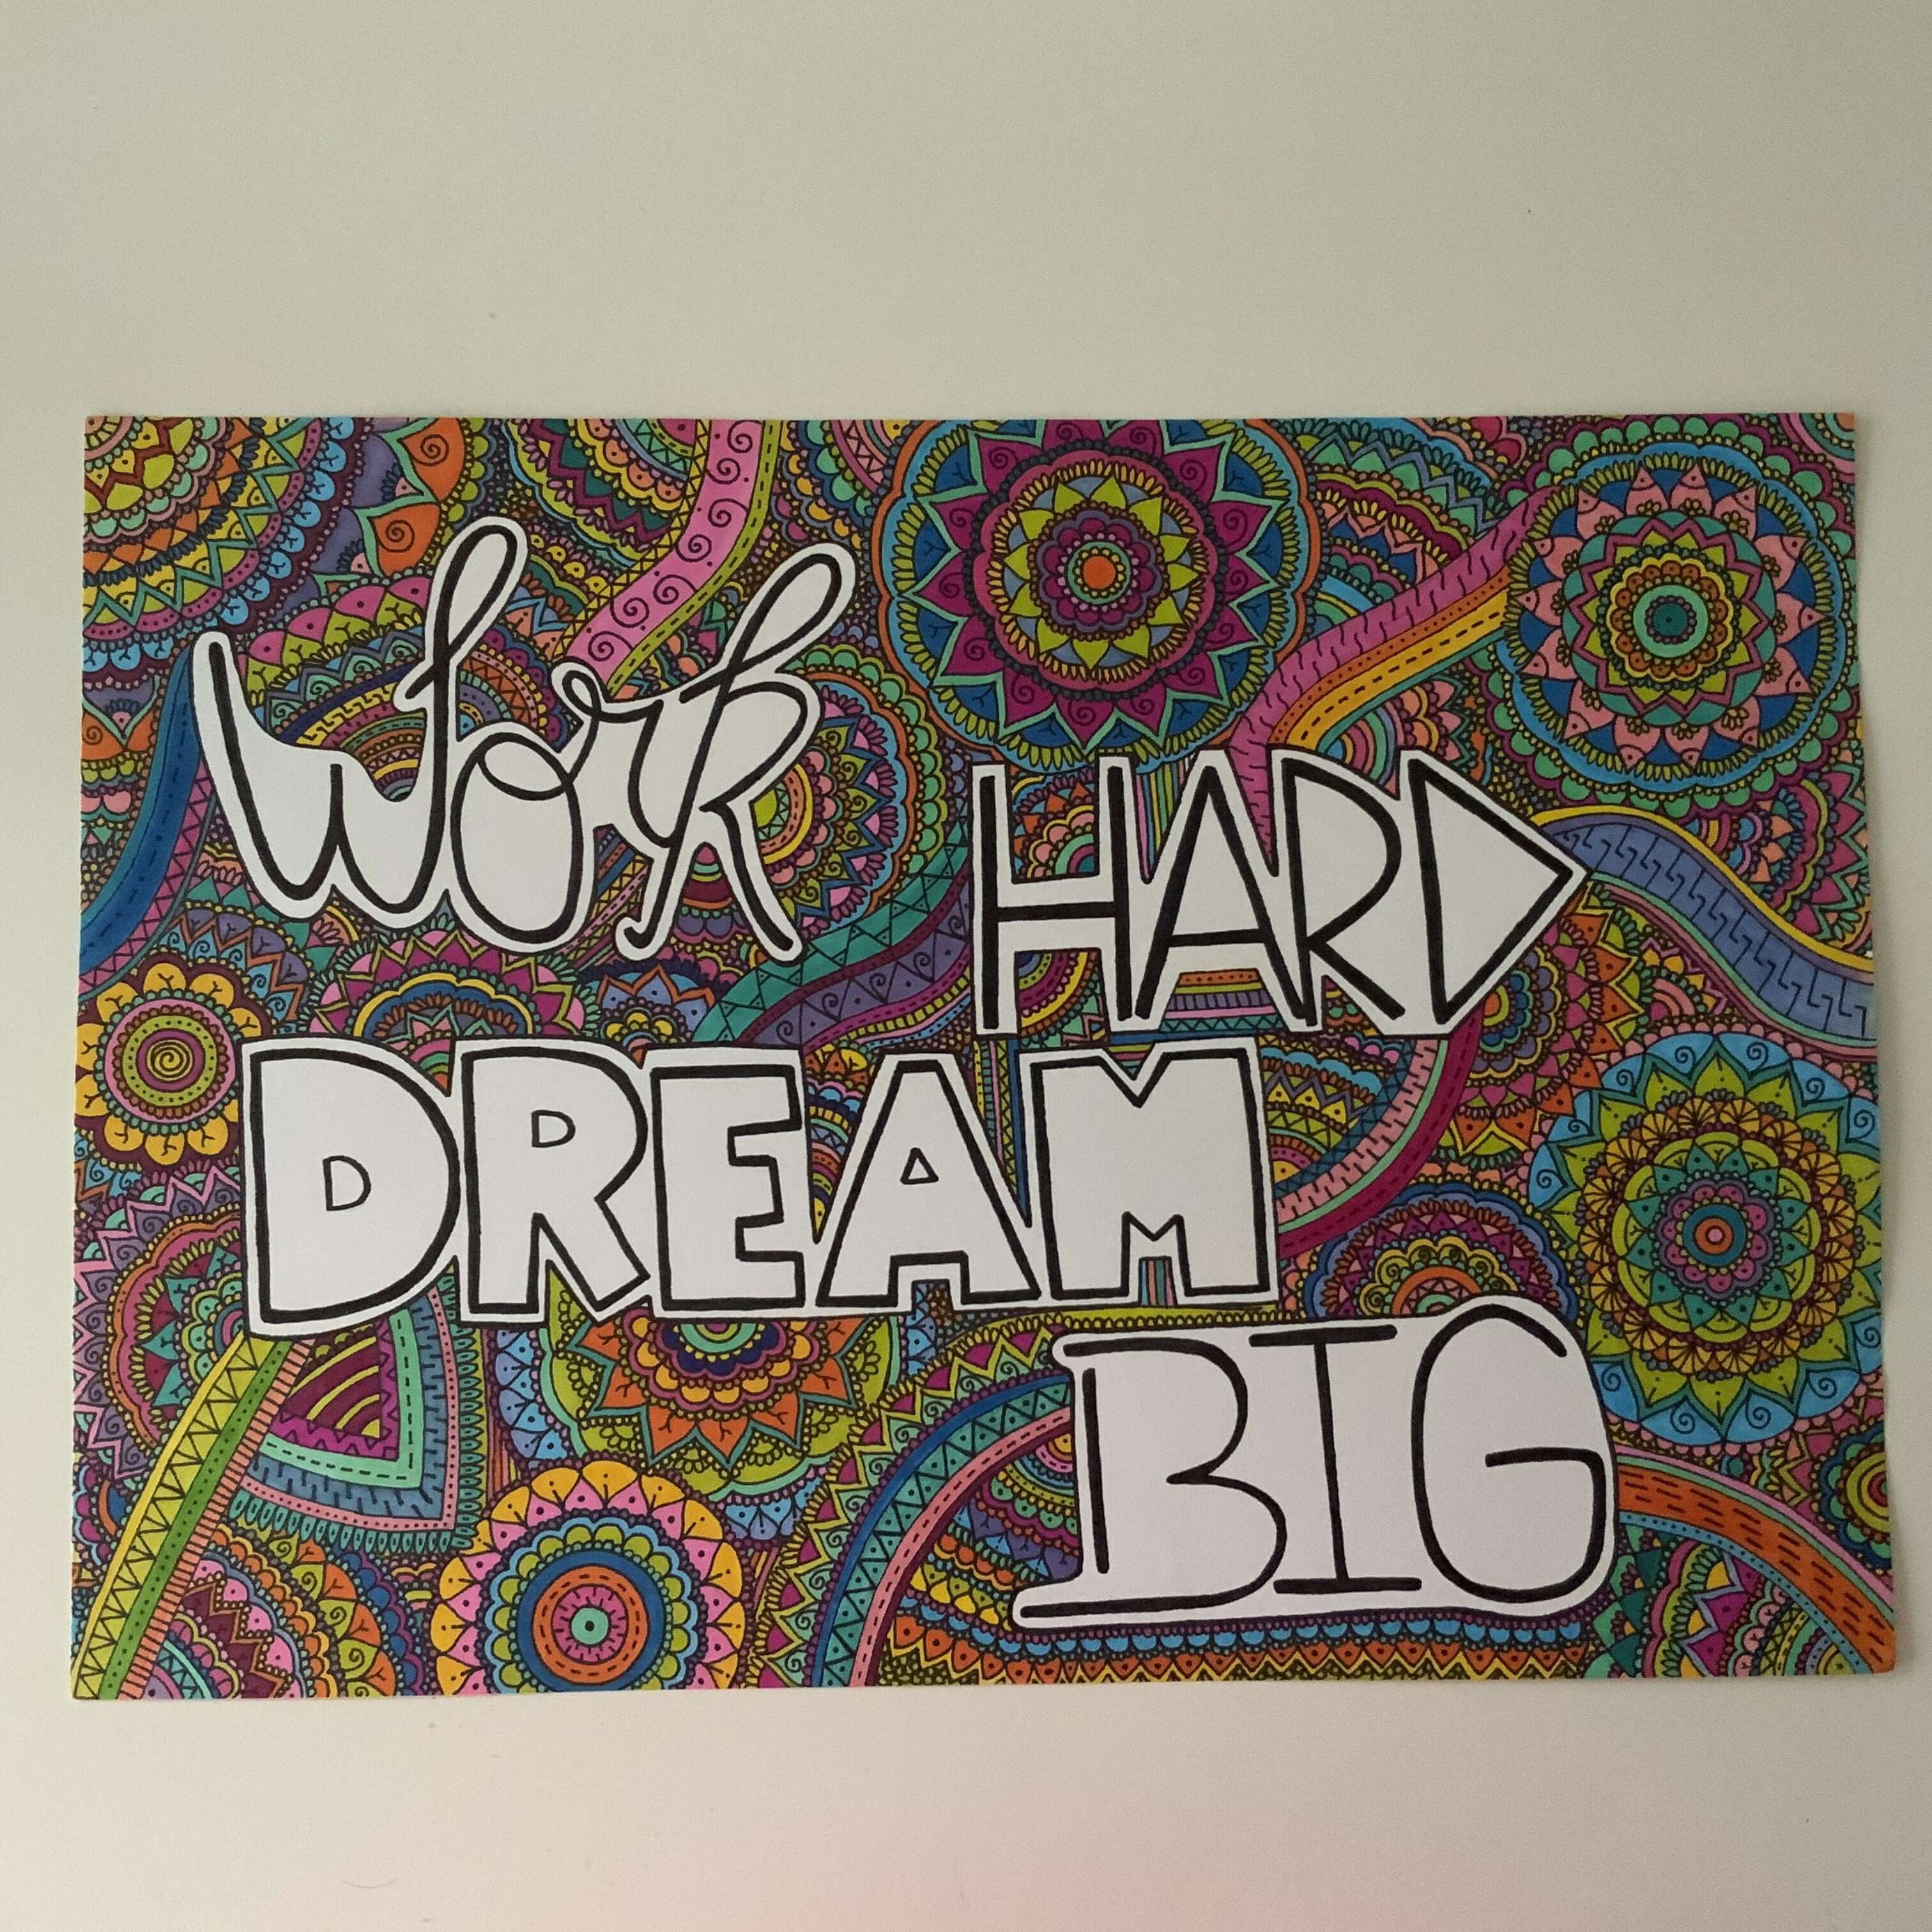 Work
HARD
DREAM
BIG